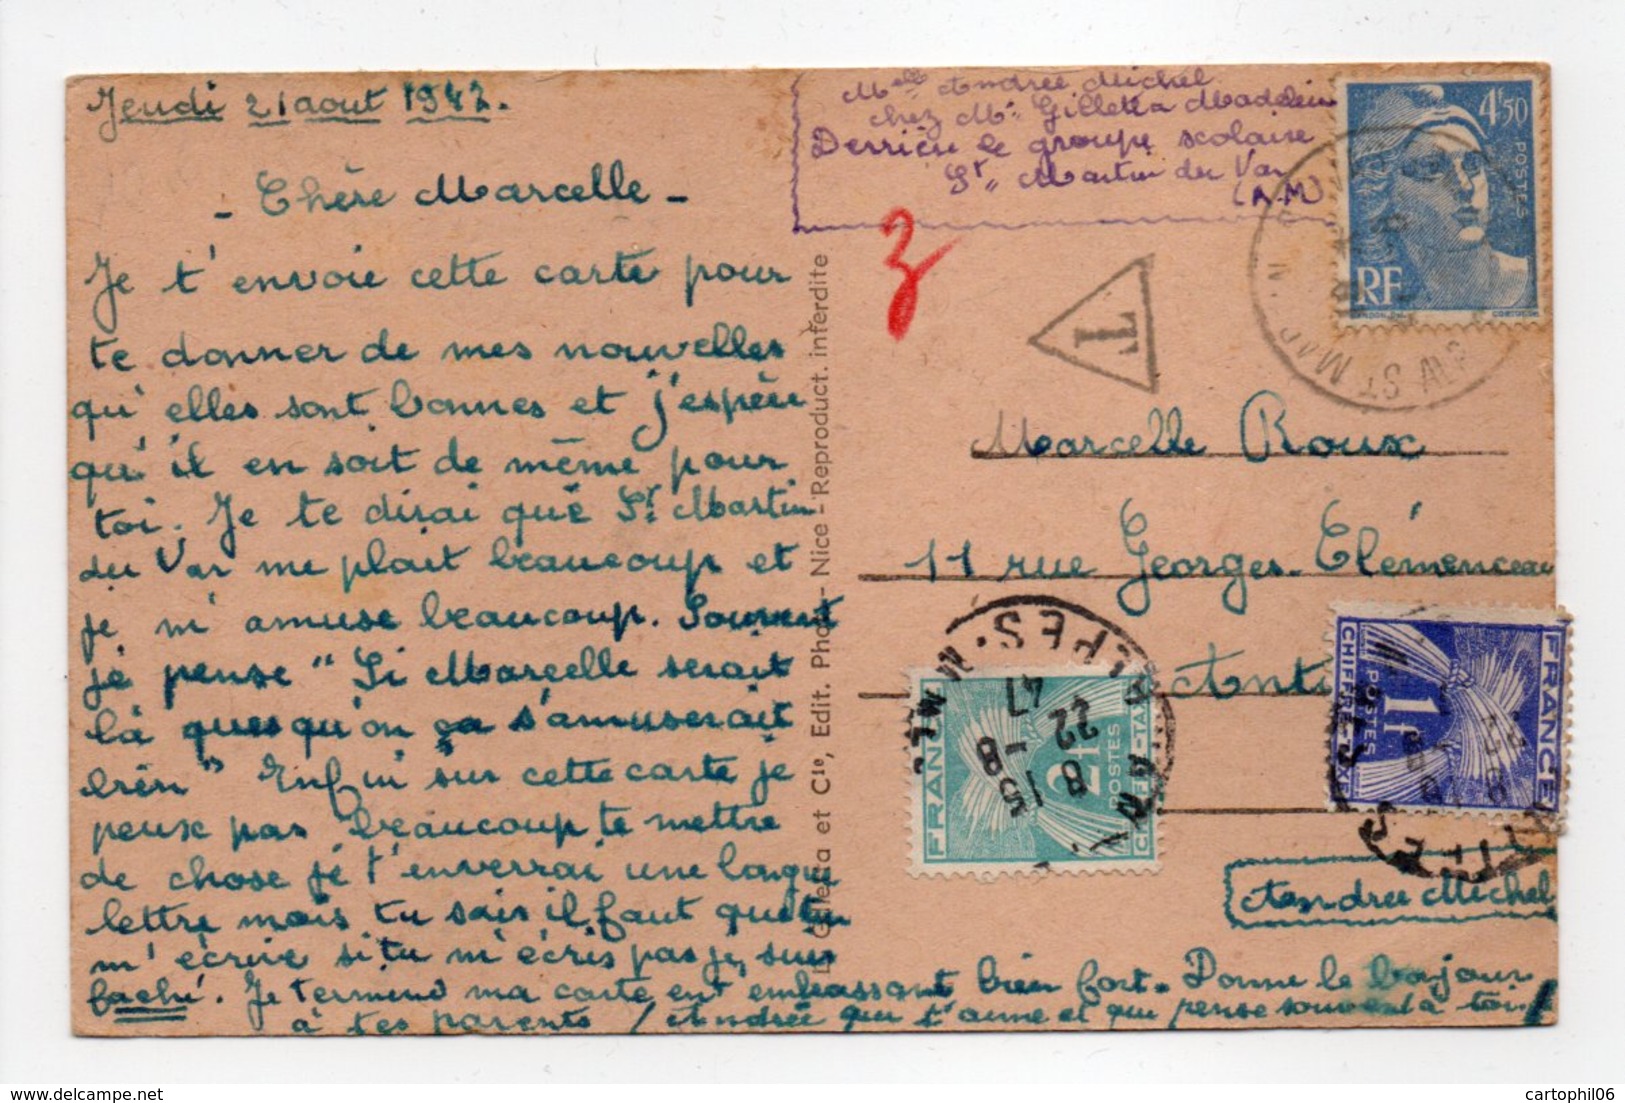 Jeudi 21 aout 1947.
- Chère Marcelle -
Je t'envoie cette carte pour
te donner de mes nouvelles
qu'elles sont bonnes et j'espère
qu'il en soit de même pour
toi. Je te dirai que St Martin
du Var me plait beaucoup et
je m'amuse beaucoup. Souvent
je pense "Si Marcelle serait
là quesqu'on ça s'amuserait
bien" Enfin sur cette carte je
peux pas beaucoup te mettre
de chose je t'enverrai une longue
lettre mais tu sais il faut que tu
m'écrive si tu m'écris pas je suis
faché. Je termine ma carte ent embrassant bien fort. Donne le bonjour
à tes parents / Andrée qui t'aime et qui pense souvent à toi.
Melle Andrée Michel
chez Me Gilletta Madelein
Derrière le groupe scolaire
St Martin du Var
(A.M)
T
4F,50
POSTES
RF
GANDON DEL.
CORTOT SC.
Marcelle Roux
11 rue Georges Clémenceau
Anti
FRANCE
POSTES
2F
CHIFFRE-TAXE
ALPES-MMES
8 15
22 -8
47
FRANCE
1F
POSTES
CHIFFRE-TAXE
Andrée Michel
Gilletta et Cie, Edit. Phot. - Nice - Reproduct. interdite
cartophil06